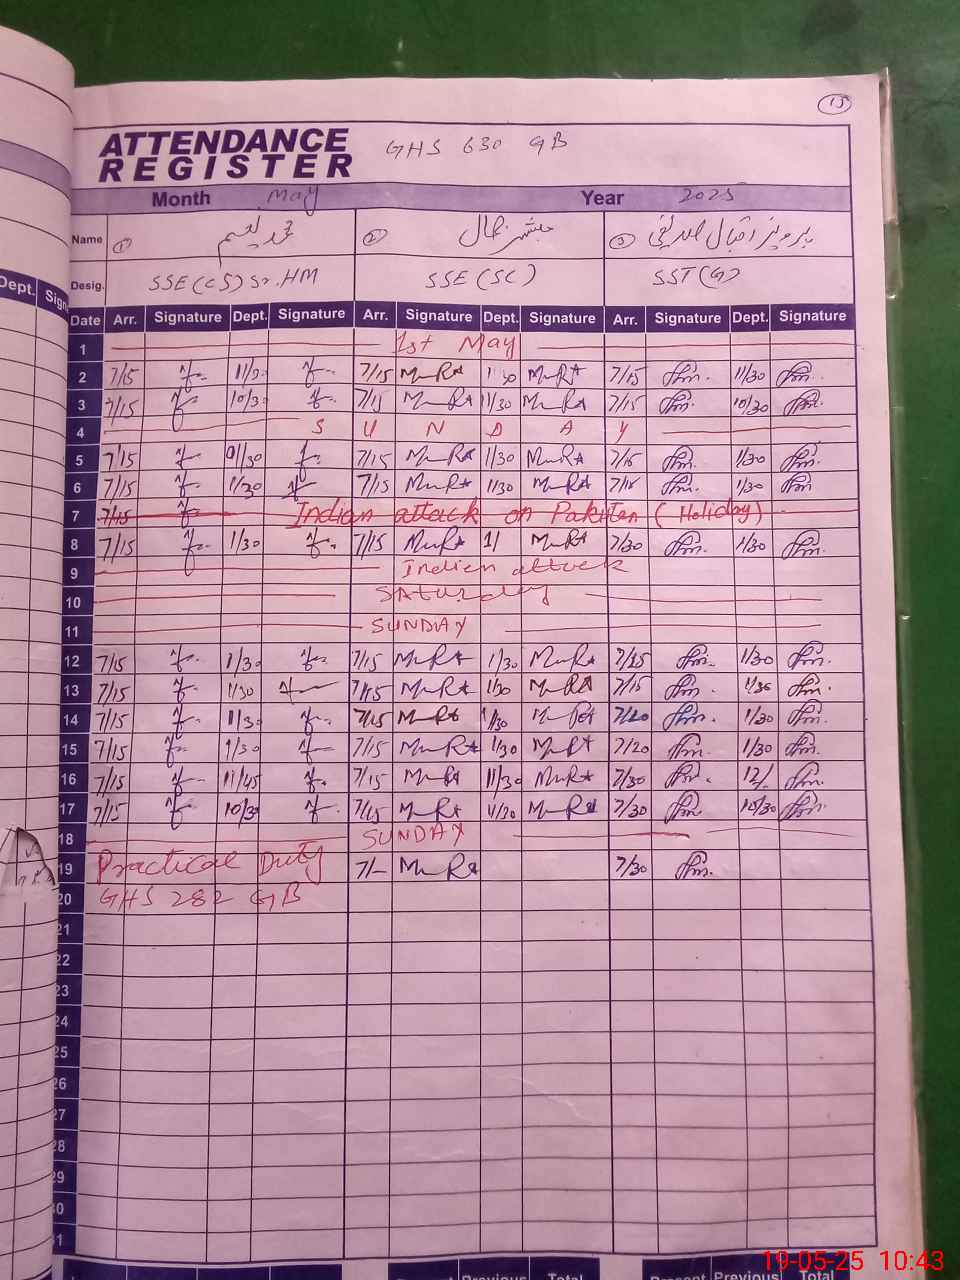 15
ATTENDANCE REGISTER GHS 630 GB
Month May Year 2025
Name 1 محمد نعیم 2 مبشر 3 پرویز اقبال صدیقی
Desig. SSE(CS) Sr. HM SSE (SC) SST (G)
Dept. Sign
Date Arr. Signature Dept. Signature Arr. Signature Dept. Signature Arr. Signature Dept. Signature
1 1st May
2 7/15 7/15 1/30 7/15 11/30
3 7/15 10/30 7/15 11/30 7/15 10/30
4 S U N D A Y
5 7/15 1/30 7/15 1/30 7/15 1/30
6 7/15 1/30 7/15 1/30 7/15 1/30
7 7/15 Indian attack on Pakistan (Holiday)
8 7/15 1/30 7/15 1/ 7/30 1/30
9 Indian attack
10 SATurday
11 SUNDAY
12 7/15 1/30 7/15 1/30 7/15 1/30
13 7/15 1/30 7/15 1/30 7/15 1/30
14 7/15 1/30 7/15 1/30 7/20 1/30
15 7/15 1/30 7/15 1/30 7/20 1/30
16 7/15 11/45 7/15 11/30 7/30 12/-
17 7/15 10/30 7/15 7/30 10/30
18 SUNDAY
19 Practical Duty 7/- 7/30
20 GHS 282 GB
21
22
23
24
25
26
27
28
29
30
31
Present Previous Total Present Previous Total
19-05-25 10:43